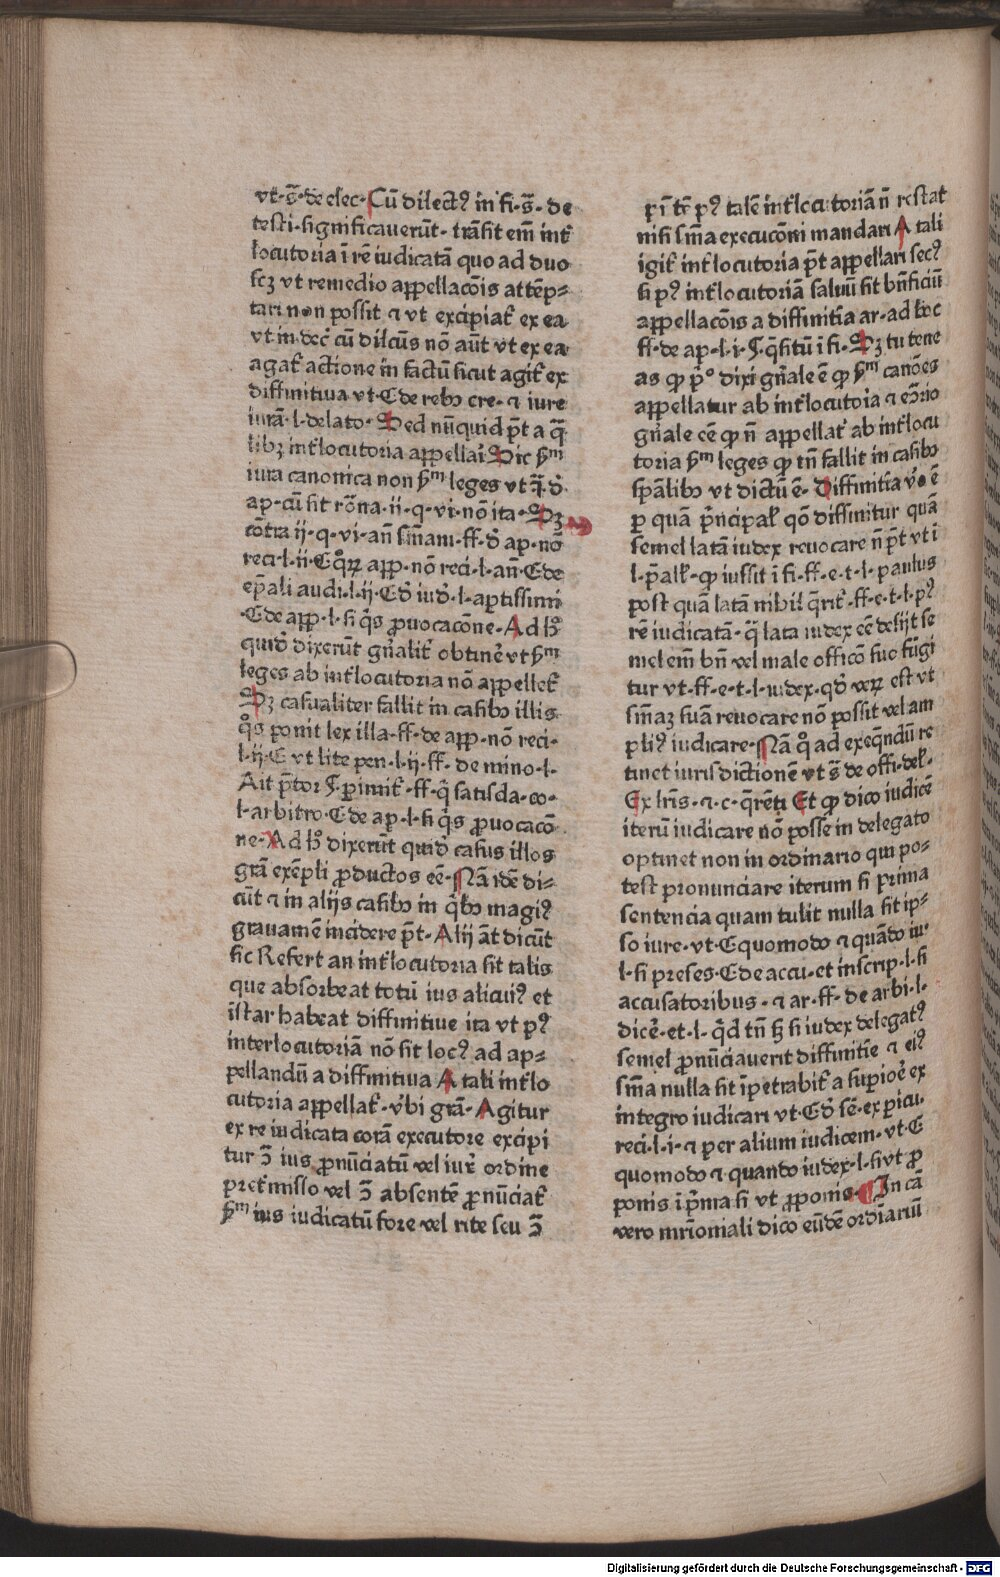 vt·s̄·de elec·Cū dilectꝰ in fi·s̄·de
testi·significauerūt·trāsit em̄ int͛
locutoria ī rē iudicatā quo ad duo
scꝫ vt remedio appellacōis attēp⸗
tari non possit ⁊ vt excipiat͛ ex ea
vt in dec̄ cū dilcūs nō aūt vt ex ea
agat͛ actione in factū sicut agit͛ ex
diffinitiua vt·C de rebꝰ cre·⁊ iure
iurā·l·delato·Sed nūquid p̄t a q̄
libꝫ int͛locutoria appellari Dic ẜm
iura canonica non ẜm leges vt q̄·d̓·
ap·cū sit rōna·ii·q·vi·nō ita·Sꝫ
cōtra ij·q·vi·an̄ sīnam·ff·d̓ ap·nō
reci·l·ii·C q̊ꝝ app·nō reci·l·an̄·C de
ep̄ali audi·l·ij·C d̓ iud̓·l·aptissimi
·C de app·l·si q̄s ꝓuocacōne·Ad h̊
quid̓ dixerūt gn̄alit͛ obtinē vt ẜm
leges ab int͛locutoria nō appellet͛
Sꝫ casualiter fallit in casibꝰ illis
q̊s ponit lex illa·ff·de app·nō reci·
l·ij·C vt lite pen·l·ij·ff·de mino·l·
Ait p̄tor ¶·ꝑimit͛·ff·q̄ satisda·co·
l·arbitro·C de ap·l·si q̄s ꝓuocacō
ne·Ad h̊ dixerūt quid̓ casus illos
grā exēpli ꝓductos eē·Nā idē di⸗
cūt ⁊ in alijs casibꝰ in q̄bꝰ magiꝰ
grauamē incidere p̄t·Alij āt dicūt
sic Refert an int͛locutoria sit talis
que absorbeat totū ius alicuiꝰ et
īstar habeat diffinitiue ita vt pꝰ
interlocutoriā nō sit locꝰ ad ap⸗
pellandū a diffinitiua A tali int͛lo
cutoria appellat͛·vbi grā·Agitur
ex re iudicata corā executore excipi
tur ꝯ̄ ius ꝓnūciatū vel iur̓ ordine
pret͛misso vel ꝯ̄ absentē ꝓnūciat͛
ẜm ius iudicatū fore vel rite seu ꝯ̄
ꝑ ī tē pꝰ talē int͛locutoriā n̄ restat
nisi sm̄a execucōni mandari A tali
igit͛ int͛locutoria p̄t appellari secꝰ
si pꝰ int͛locutoriā saluū sit bn̄ficiū
appellacōis a diffinitīa ar·ad hoc
ff·de ap·l·i·¶·q̄situ ī fi·Sꝫ tu tene
as ꝙ p̄º dixi gn̄ale ē ꝙ ẜm canōes
appellatur ab int͛locutoīa ⁊ eↄ̄rio
gn̄ale eē ꝙ n̄ appellat͛ ab int͛locu
toria ẜm leges ꝙ tn̄ fallit in casibꝰ
sp̄alibꝰ vt dictū ē·Diffinitīa v̓o ē
ꝑ quā p̄ncipal͛ qō diffinitur quā
semel latā iudex reuocare n̄ p̄t vt ī
l·p̄all͛·ꝙ iussit ī fi·ff·e·t·l·paulus
post quā latā nihil q̄rit͛·ff·e·t·l·pꝰ
rē iudicatā·q̄ lata iudex eē desijt se
mel em̄ bn̄ vel male officō suo fūgi
tur vt·ff·e·t·l·iudex·qd̓ veꝝ est vt
sm̄aꝫ suā reuocare nō possit vel am
pliꝰ iudicare·Nā q̊ ad exeq̄ndū re
tinet iurisdictionē vt s̄ de offi·del͛·
Ex lr̄is·⁊·c·q̄rēti Et ꝙ dico iudicē
iterū iudicare nō posse in delegato
optinet non in ordinario qui po⸗
test pronunciare iterum si prima
sentencia quam tulit nulla sit ip⸗
so iure·vt·C quomodo ⁊ quādo iu͛
l·si preses·C de accu·et inscrip·l·si
accusatoribus·⁊ ar·ff·de arbi·l·
dicē·et·l·q̄d tn̄ ꜧ̄ si iudex delegatꝰ
semel ꝓnūciauerit diffinitīe ⁊ eiꝰ
sm̄a nulla sit īpetrabit͛ a supioē ex
integro iudicari vt·C d̓ sē·ex ꝑicu·
reci·l·i·⁊ per alium iudicem·vt·C
quomodo ⁊ quando iudex·l·si vt ꝓ
ponis ī p̄ma si vt ꝓponis·¶ In cā
vero mr̄ionīali dico eūdē ordīariū
Digitalisierung gefördert durch die Deutsche Forschungsgemeinschaft - DFG